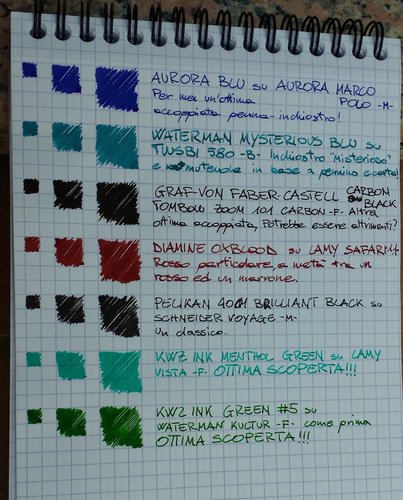 AURORA BLU su AURORA MARCO
POLO -M-
Per me un'ottima
accoppiata penna-inchiostro!
WATERMAN MYSTERIOUS BLU su
TWSBI 580 -B- Inchiostro "misterioso"
e mutevole in base a pennino e carta!
GRAF-VON FABER-CASTELL CARBON
BLACK
TOMBOW ZOOM 101 CARBON -F- Altra
ottima accoppiata. Potrebbe essere altrimenti?
DIAMINE OXBLOOD su LAMY SAFARI
Rosso particolare, a metà tra un
rosso ed un marrone.
PELIKAN 4001 BRILLIANT BLACK su
SCHNEIDER VOYAGE -M-
Un classico.
KWZ INK MENTHOL GREEN su LAMY
VISTA -F- OTTIMA SCOPERTA!!!
KWZ INK GREEN #5 su
WATERMAN KULTUR -F- come prima
OTTIMA SCOPERTA!!!